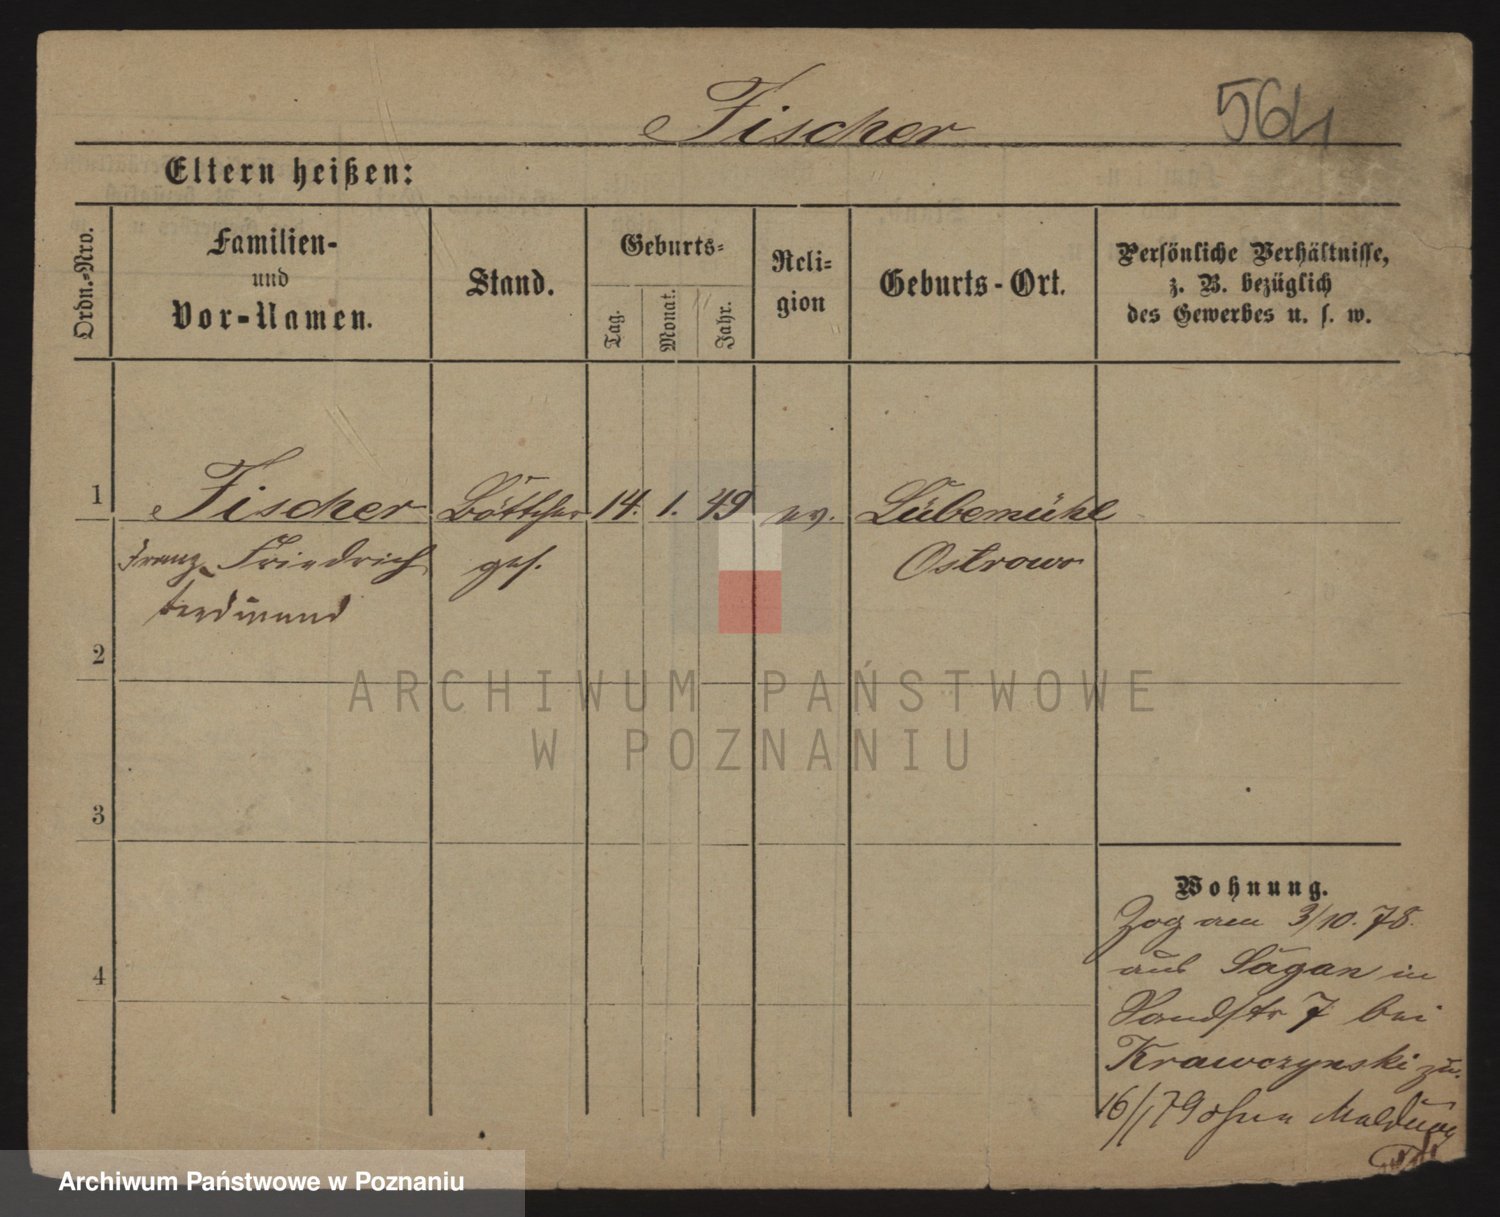 Fischer 564
Eltern heißen:
Ordn.-Nro. Familien- und Vor-Namen. Stand. Geburts- Tag. Monat. Jahr. Religion Geburts-Ort. Persönliche Verhältnisse, z. B. bezüglich des Gewerbes u. s. w.
1 Fischer Böttcher 14. 1. 49 ev. Lübemühl
Franz Friedrich ges. Ostrowo
Ferdinand
2
3
4
Wohnung.
Zog am 3/10. 78.
aus Sagan in
Sandstr 7 bei
Krawczynski zu.
16/1 79 ohne Meldung
ARCHIWUM PAŃSTWOWE
W POZNANIU
Archiwum Państwowe w Poznaniu